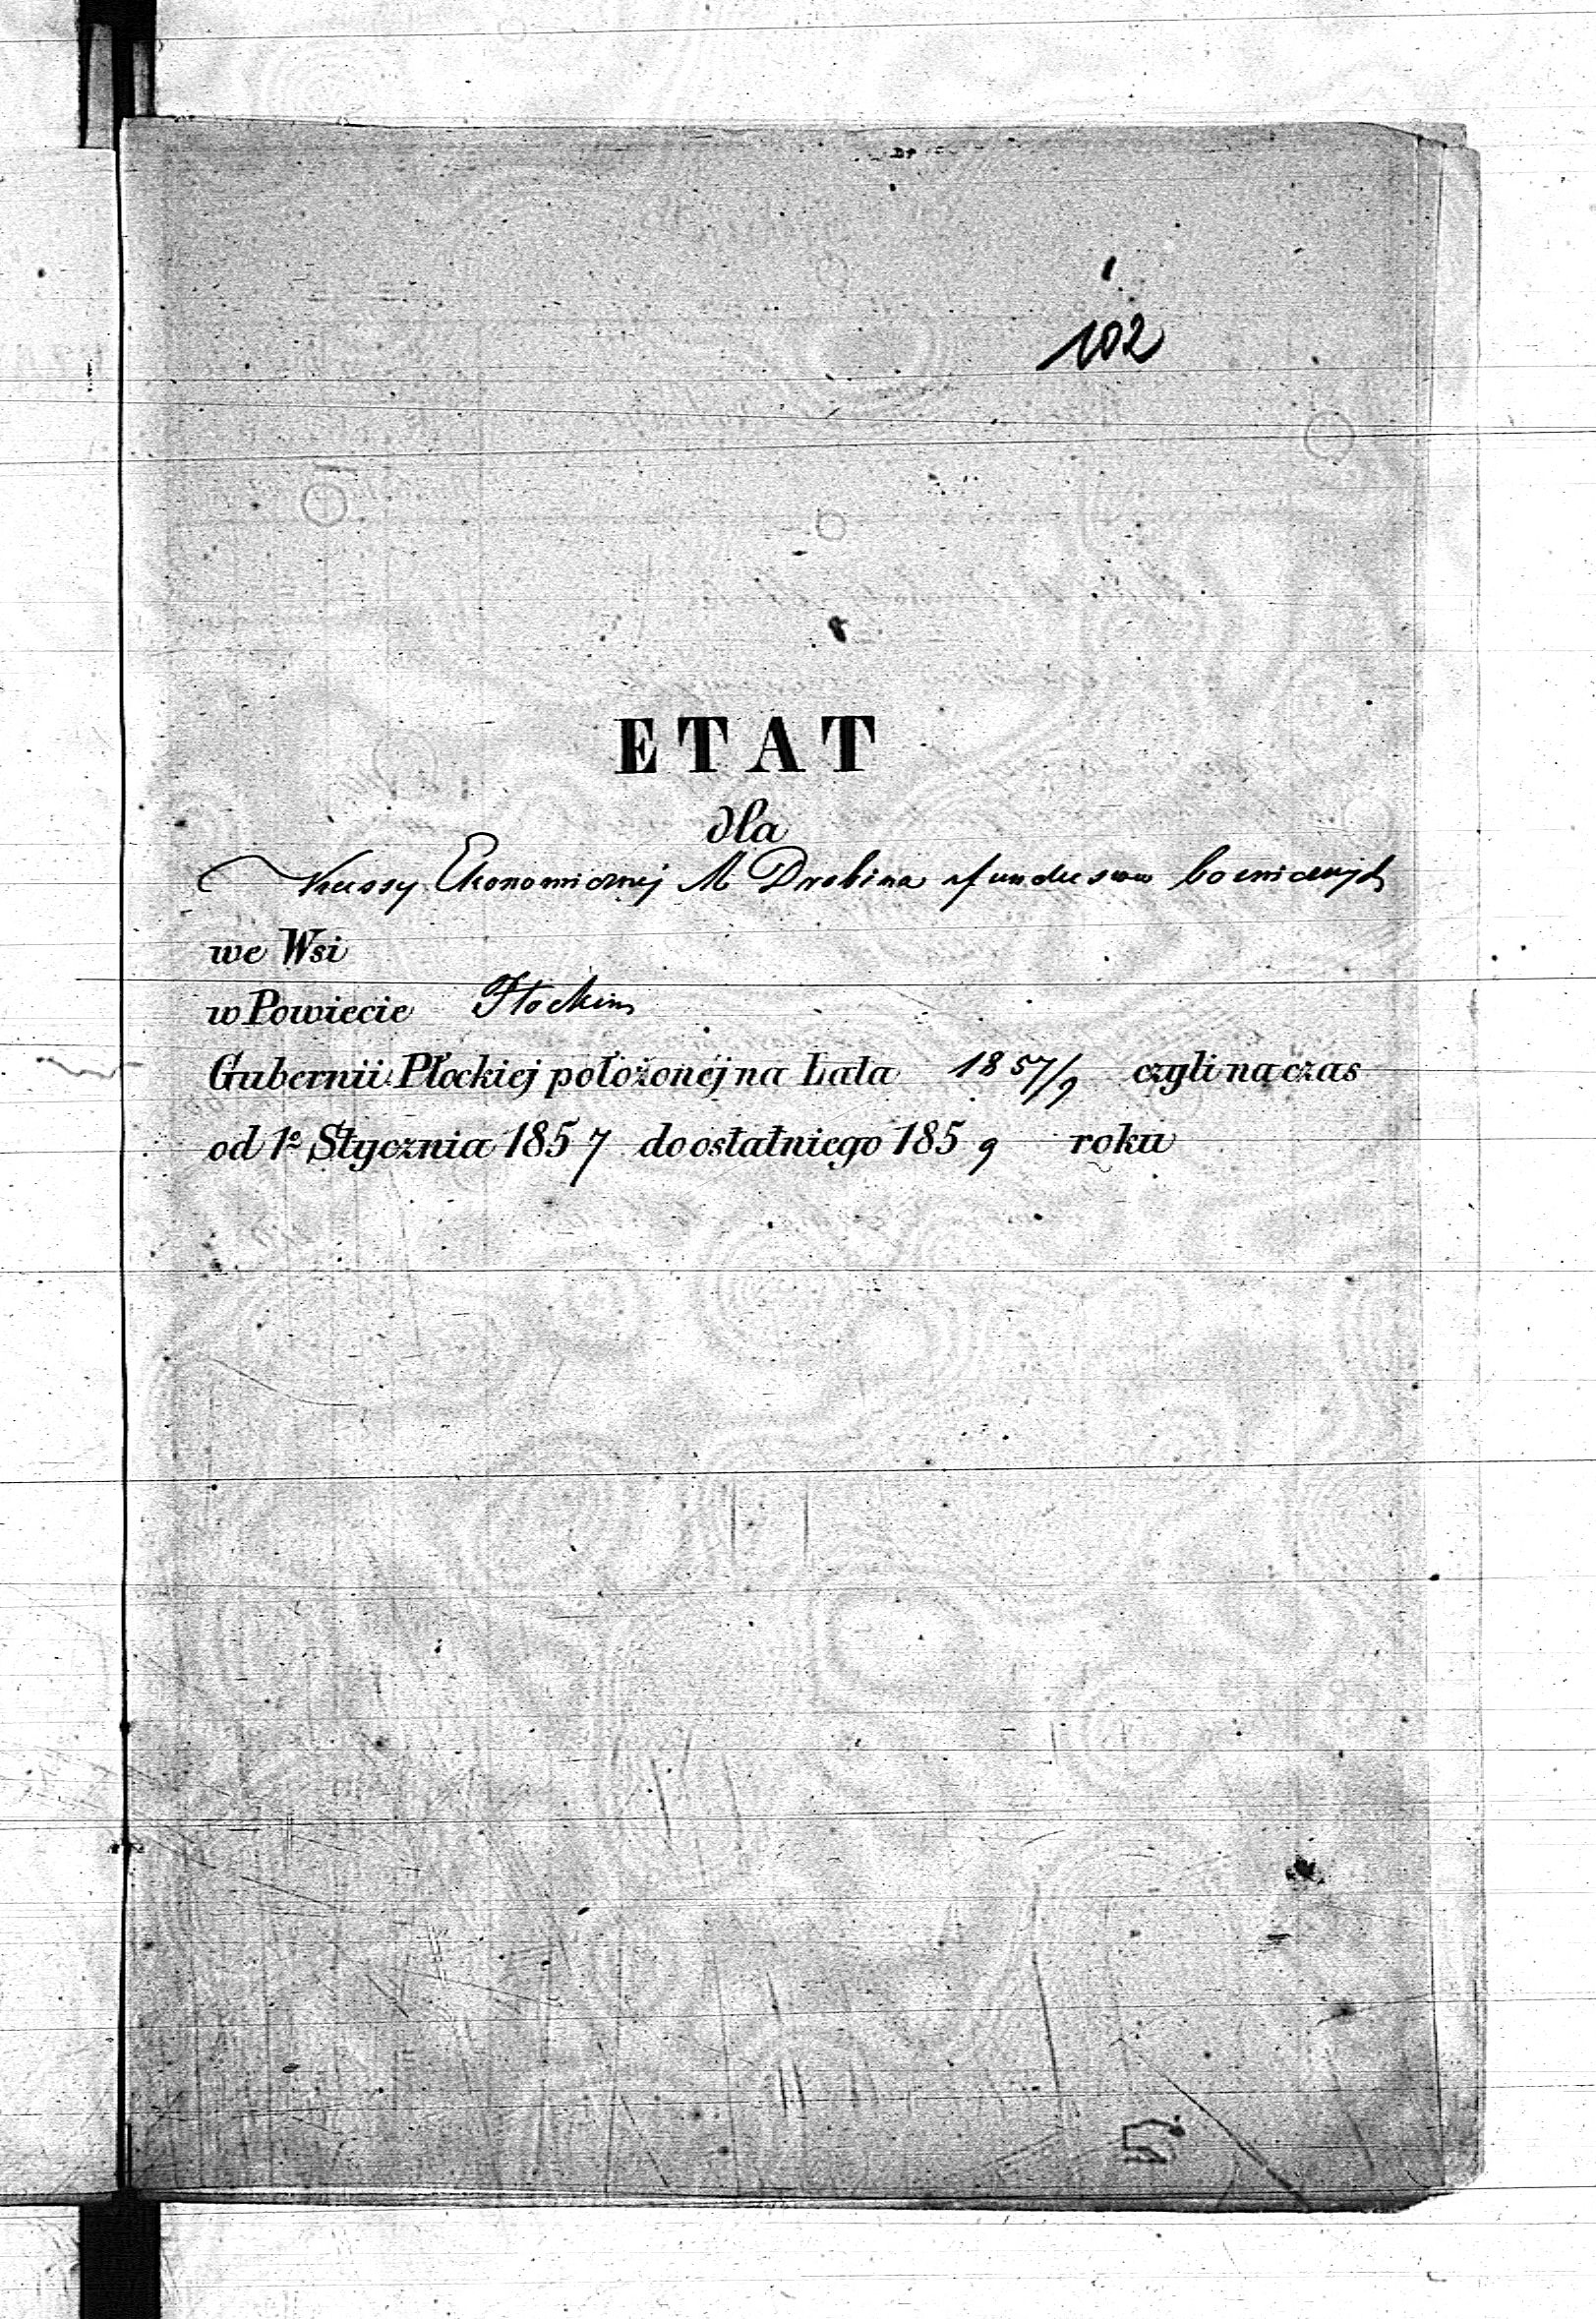 102
ETAT
dla
Kassy Ekonomicznej M Drobina z funduszów bożniczych
we Wsi
w Powiecie Płockim
Gubernii Płockiej położonéj na Lata 1857/9 czyli na czas
od 1º Stycznia 1857 do ostatniego 1859 roku